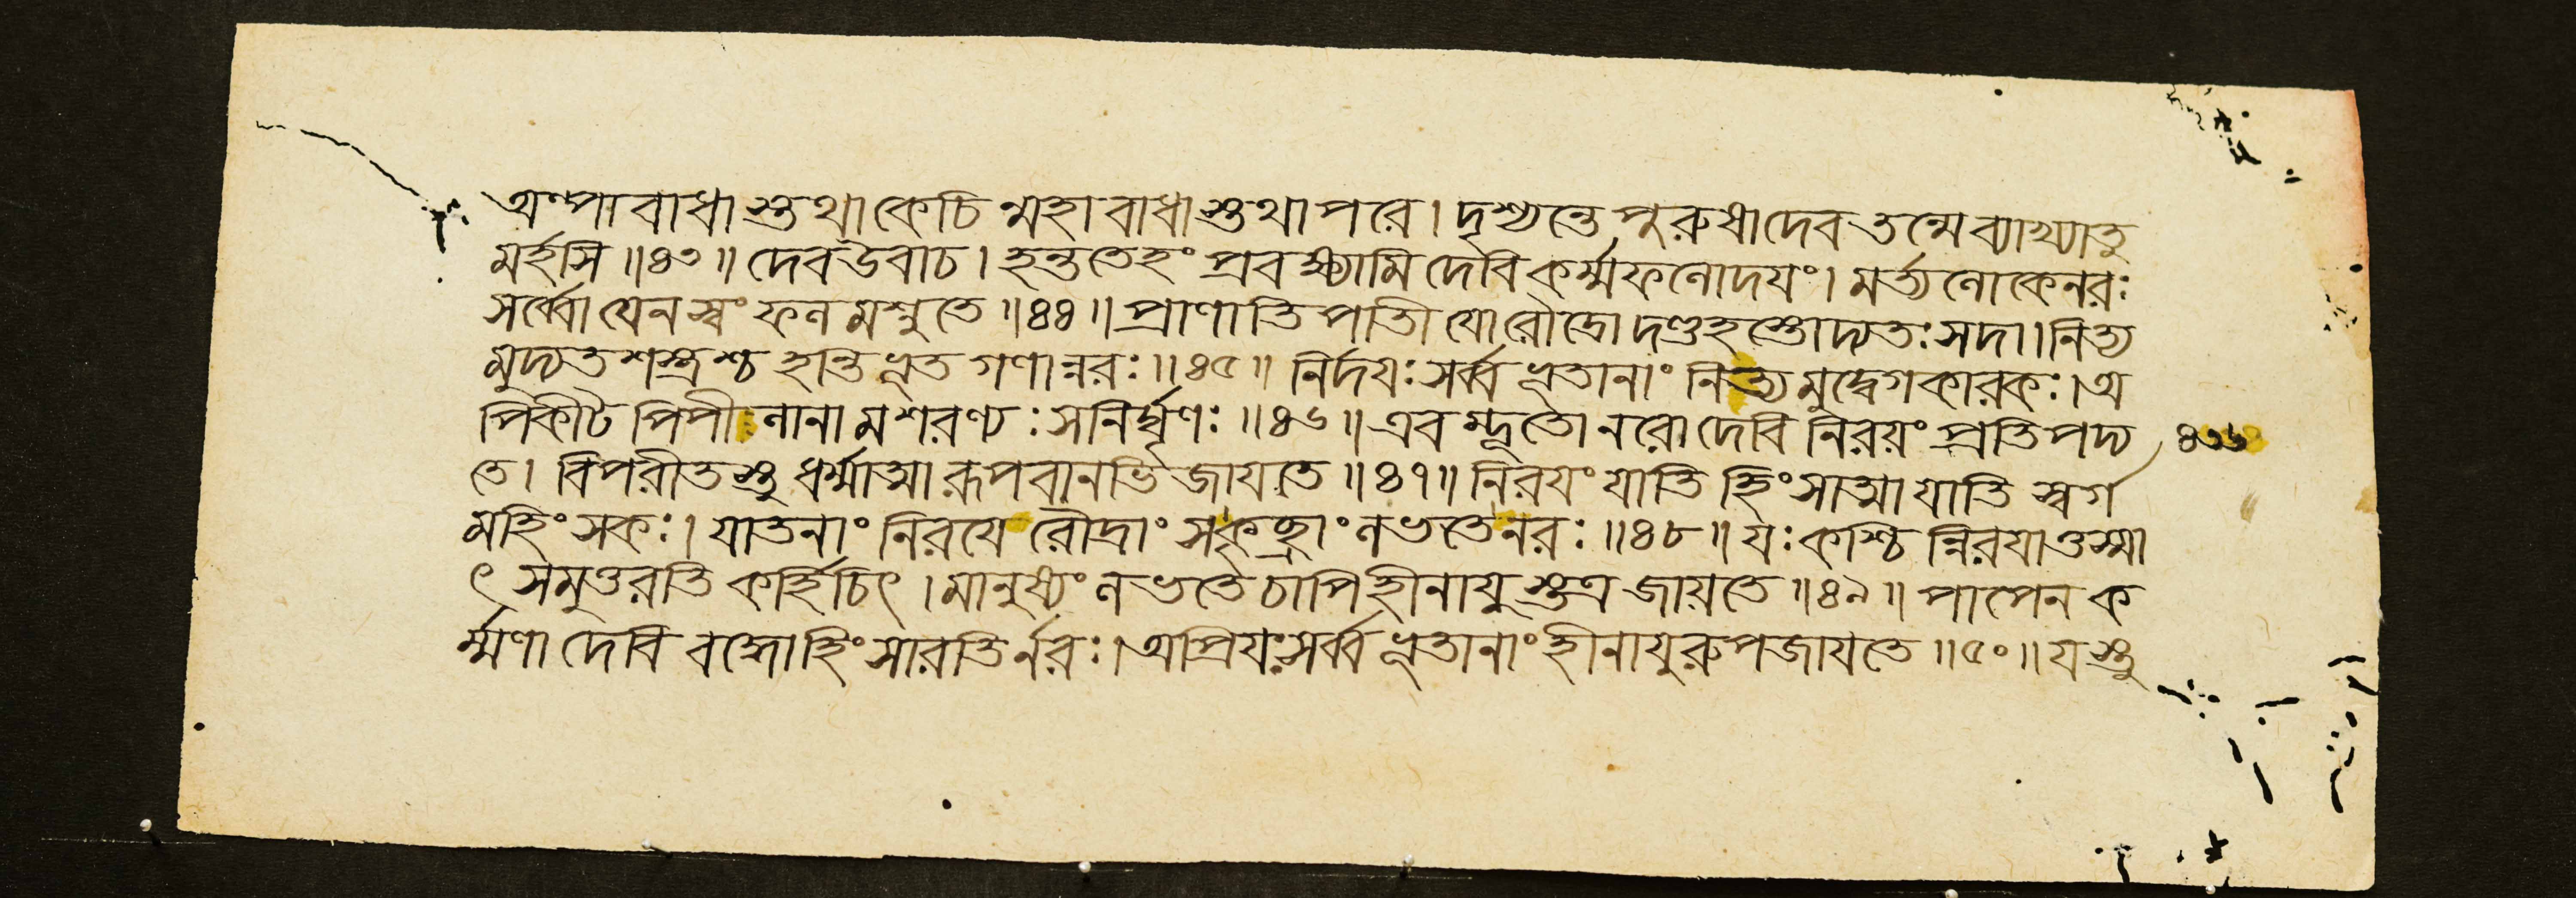 অল্পাবাধাস্তথাকেচিন্মহাবাধাস্তথাপরে। দৃশ্যন্তে পুরুষাদেবতন্মেব্যাখ্যাতু
মর্হসি॥৪৩॥ দেবউবাচ। হন্ততেহং প্রবক্ষ্যামি দেবি কর্ম্মফলোদয়ং। মর্ত্যলোকেনরঃ
সর্ব্বোযেনস্বংফলমশ্নুতে॥৪৪॥ প্রাণাতিপাতী যোরৌদ্রোদণ্ডহস্তোদ্যতঃসদা। নিত্য
মুদ্যতশস্ত্রশ্চহন্তিভূতগণান্নরঃ॥৪৫॥ নির্দয়ঃসর্ব্বভূতানাং নিত্যমুদ্বেগকারকঃ। অ
পিকীটপিপীলানামশরণ্যঃসনির্ঘৃণঃ॥৪৬॥ এবম্ভূতোনরোদেবি নিরয়ং প্রতিপদ্য ৪৩৬
তে। বিপরীতস্তুধর্ম্মাত্মারূপবানভিজায়তে॥৪৭॥ নিরয়ংযাতিহিংসাত্মাযাতিস্বর্গ
মহিংসকঃ। যাতনাংনিরয়েরৌদ্রাংসকৃচ্ছ্রাংলভতেনরঃ॥৪৮॥ যঃকশ্চিন্নিরয়াত্তস্মা
ৎসমুত্তরতিকর্হিচিৎ। মানুষ্যংলভতেচাপিহীনায়ুস্তত্রজায়তে॥৪৯॥ পাপেনক
র্ম্মণাদেবি বদ্ধোহিংসারতির্নরঃ। অপ্রিয়ঃসর্ব্বভূতানাংহীনায়ুরুপজায়তে॥৫০॥ যস্তু